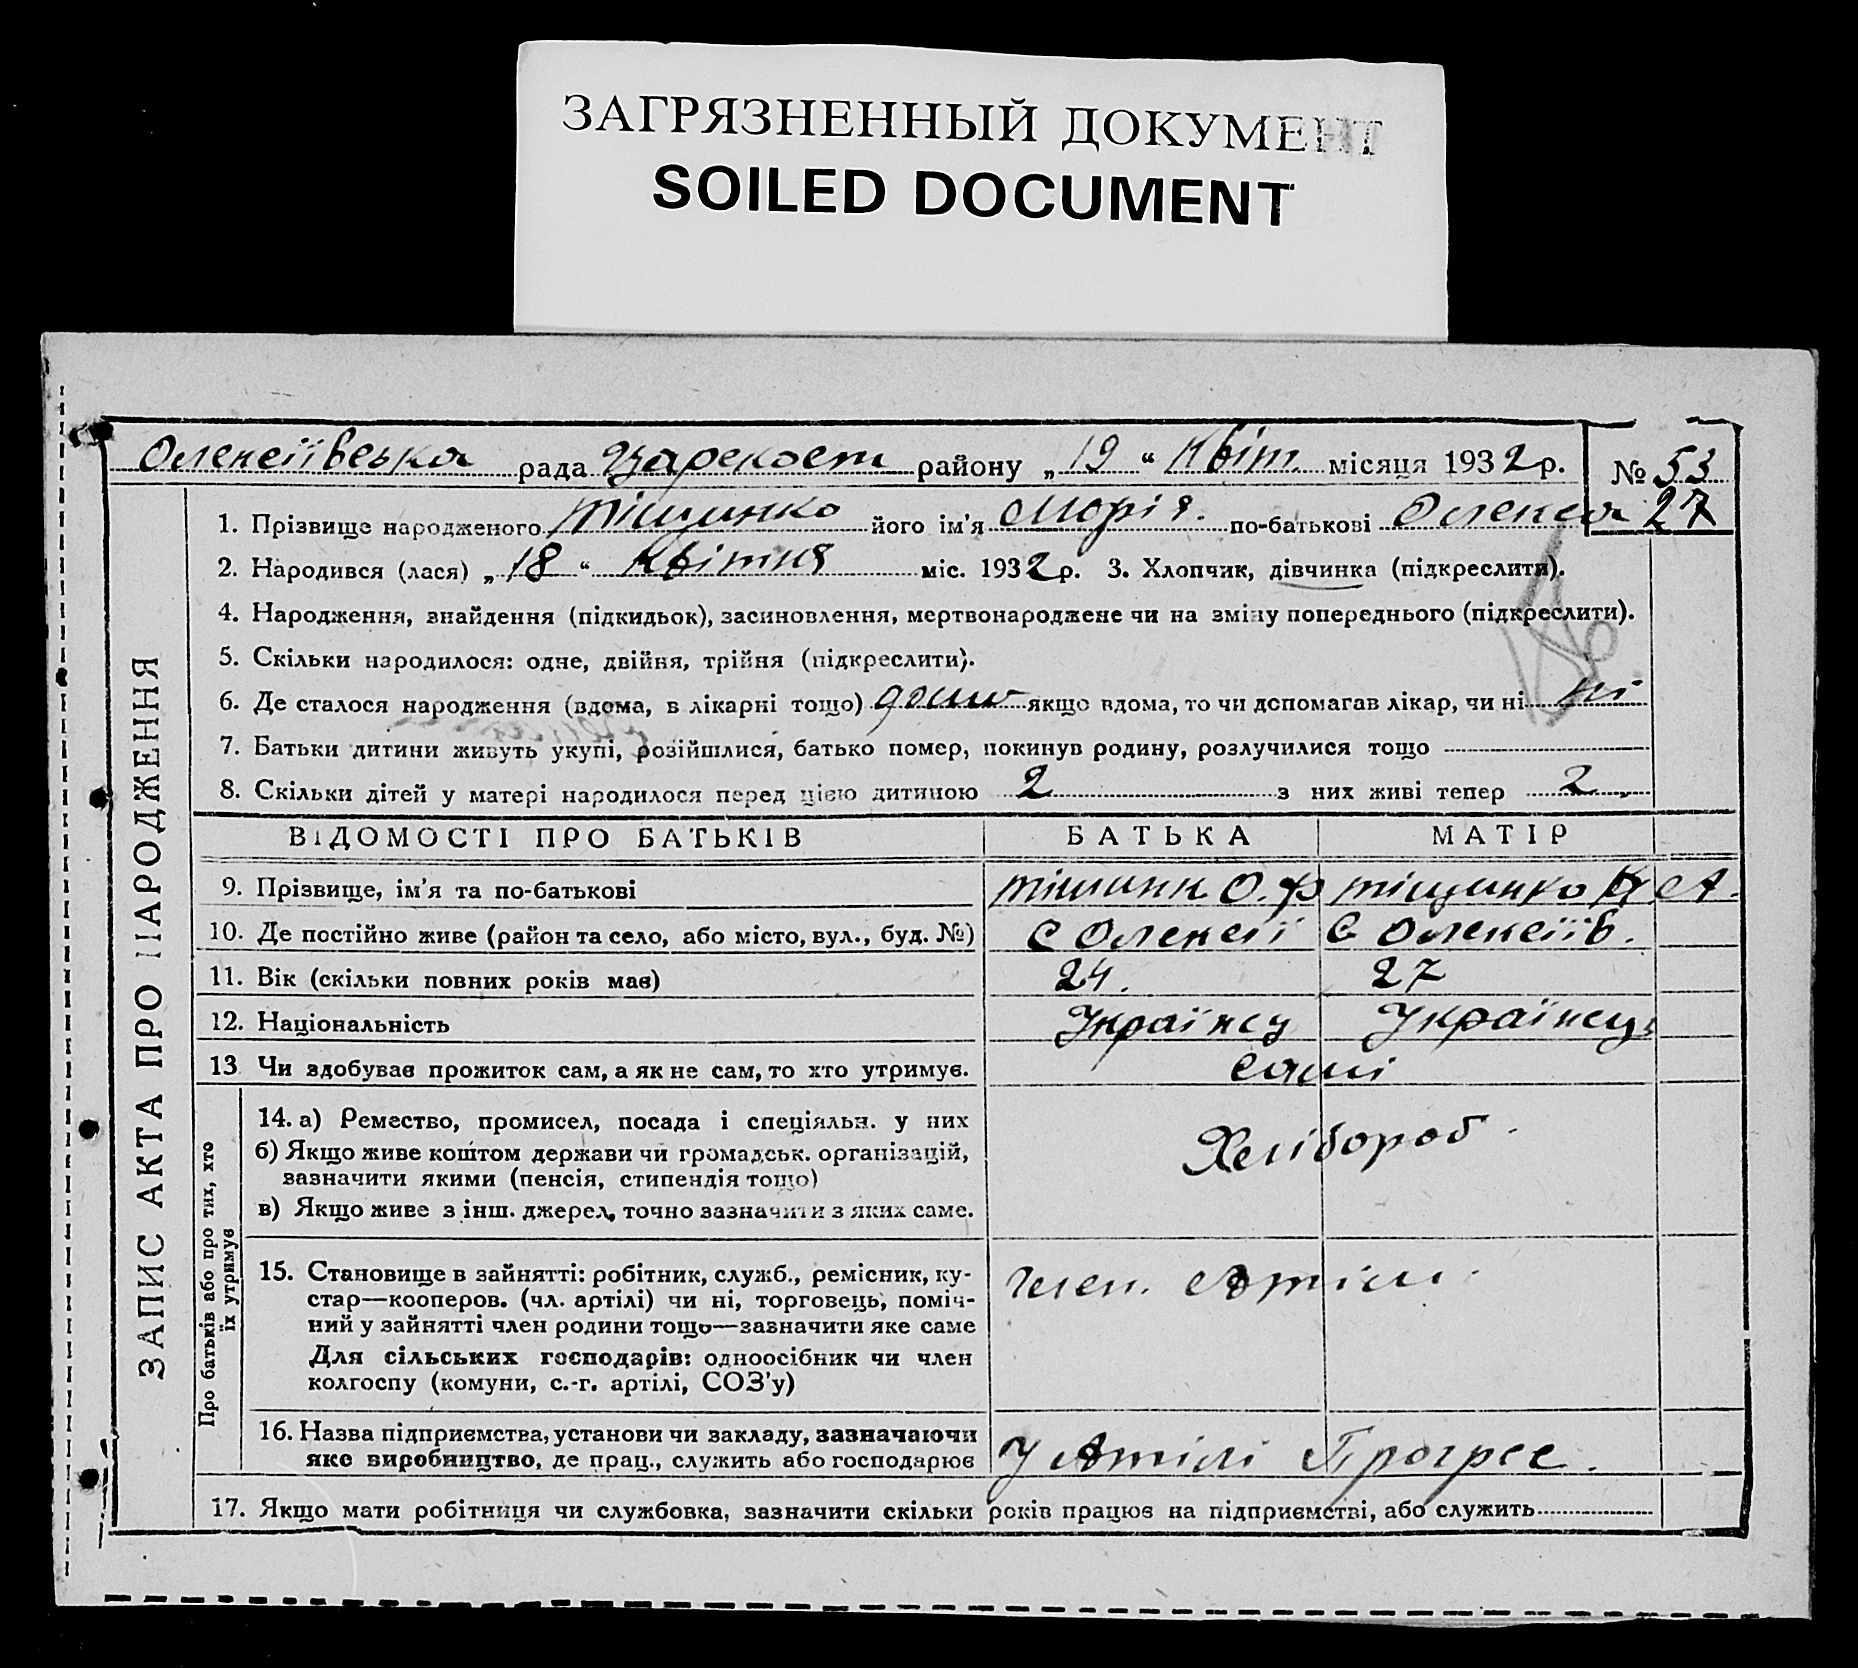 ЗАГРЯЗНЕННЫЙ ДОКУМЕНТ
SOILED DOCUMENT
Олексіївська рада Царекост району „ 19 “ Квіт місяця 1932 р. № 53
1. Прізвище народженого Тіщинко його ім'я Марія. по-батькові Олексеа 27
2. Народився (лася) „ 18 “ Квітня міс. 1932 р. 3. Хлопчик, дівчинка (підкреслити).
4. Народження, знайдення (підкидьок), засиновлення, мертвонароджене чи на зміну попереднього (підкреслити).
5. Скільки народилося: одне, двійня, трійня (підкреслити).
6. Де сталося народження (вдома, в лікарні тощо) якщо вдома, то чи допомагав лікар, чи ні ні
7. Батьки дитини живуть укупі, розійшлися, батько помер, покинув родину, розлучилися тощо
8. Скільки дітей у матері народилося перед цією дитиною 2 з них живі тепер 2
ВІДОМОСТІ ПРО БАТЬКІВ БАТЬКА МАТІР
9. Прізвище, ім'я та по-батькові Тіщинк О. Ф Тіщинко А.
10. Де постійно живе (район та село, або місто, вул., буд. №) С Олексії С Олексіїв.
11. Вік (скільки повних років має) 24. 27
12. Національність Українец Українець
13 Чи здобуває прожиток сам, а як не сам, то хто утримує. Самі
14. а) Ремество, промисел, посада і спеціяльн. у них
б) Якщо живе коштом держави чи громадськ. організацій,
зазначити якими (пенсія, стипендія тощо)
в) Якщо живе з інш. джерел, точно зазначити з яких саме.
Хелібороб.
15. Становище в зайнятті: робітник, служб., ремісник, ку-
стар—кооперов. (чл. артілі) чи ні, торговець, поміч-
ний у зайнятті член родини тощо—зазначити яке саме
Для сільських господарів: одноосібник чи член
колгоспу (комуни, с.-г. артілі, СОЗ'у)
Член. Атіли
16. Назва підприємства, установи чи закладу, зазначаючи
яке виробництво, де прац., служить або господарює
У Атілі Прогрес.
17. Якщо мати робітниця чи службовка, зазначити скільки років працює на підприємстві, або служить
ЗАПИС АКТА ПРО НАРОДЖЕННЯ
Про батьків або про тих, хто
їх утримує